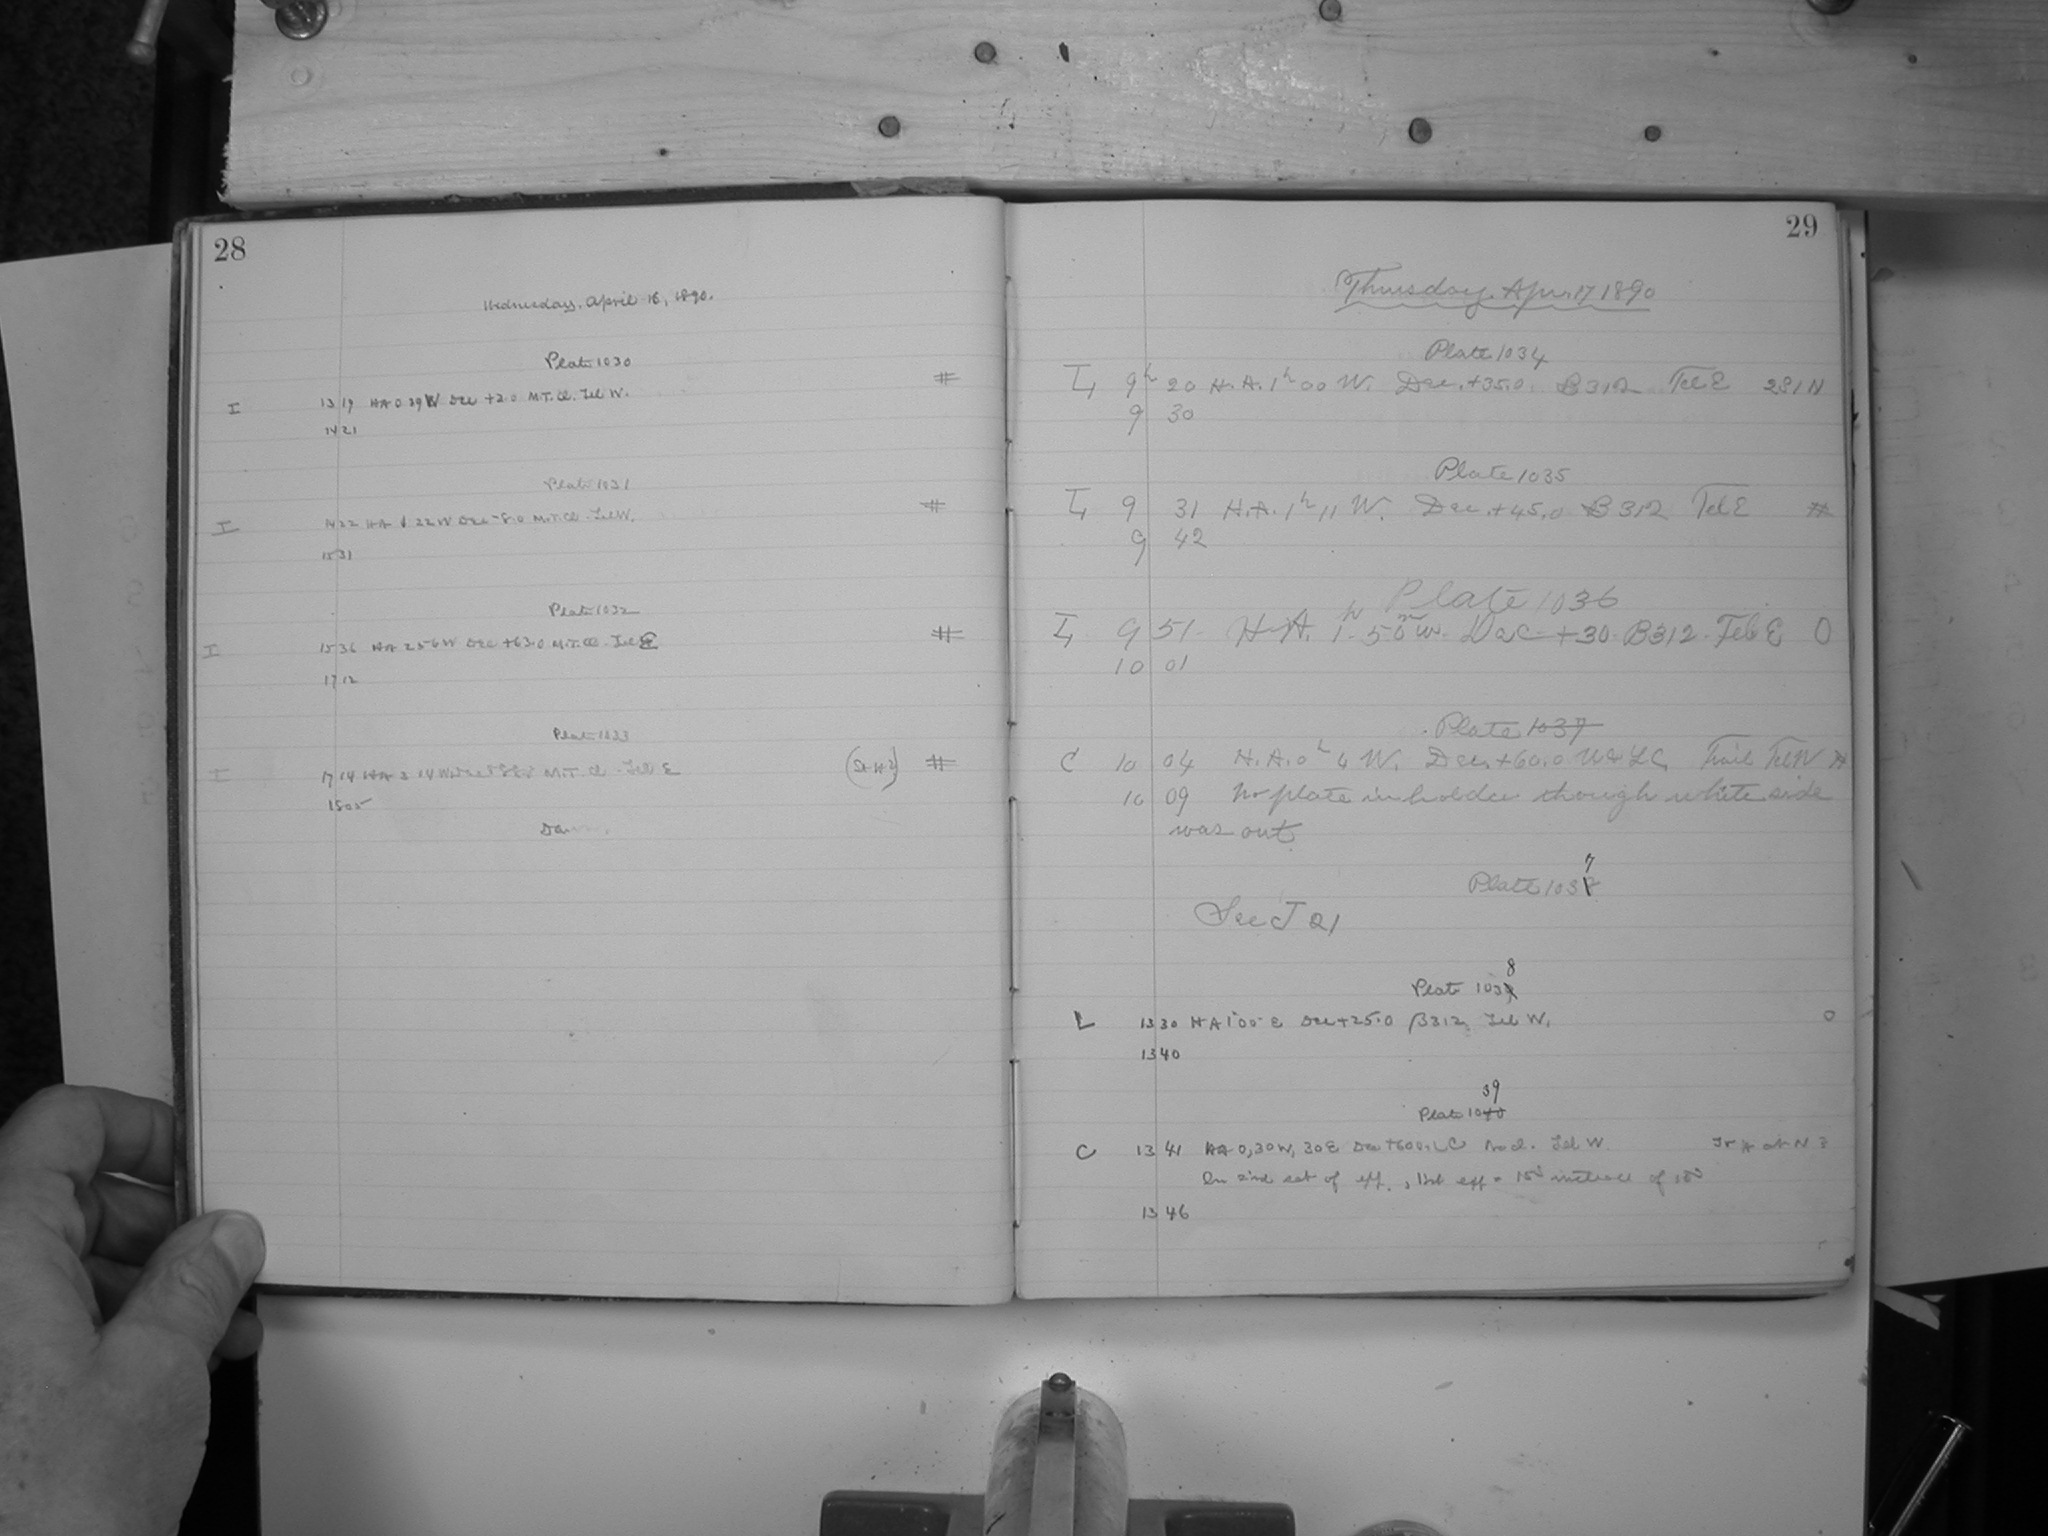 28
Wednesday, April 16, 1890.
Plate 1030
I 13 19 HA 0 29 W Dec +2.0 M.T. Cl. Tel W. #
14 21
Plate 1031
I 14 22 HA 1 22 W Dec -8.0 M.T. Cl. Tel W. #
15 31
Plate 1032
I 15 36 HA 2 56 W Dec +63.0 M.T. Cl. Tel E #
17 12
Plate 1033
I 17 14 HA 3 14 W M.T. Cl. Tel E #
18 05
29
Thursday, Apr. 17 1890
Plate 1034
I 9h 20 H.A. 1h 00 W. Dec. +35.0. B312 Tel E 281N
9 30
Plate 1035
I 9 31 H.A. 1h 11 W. Dec. +45.0 B312 Tel E #
9 42
Plate 1036
I 9 51. H.A. 1h 50m W. Dec +30. B312. Tel E 0
10 01
Plate 1037
C 10 04 H.A. 0h 4 W. Dec. +60.0 Trail Tel W #
10 09 No plate in holder though white side
was out
7
Plate 1038
See J 21
8
Plate 1039
L 13 30 HA 1 00 E Dec +25.0 B312 Tel W. 0
13 40
39
Plate 1040
C 13 41 HA 0, 30W, 30E Dec +60 Tel W.
In 2nd set of eff., 1st eff = 150 instead of
13 46